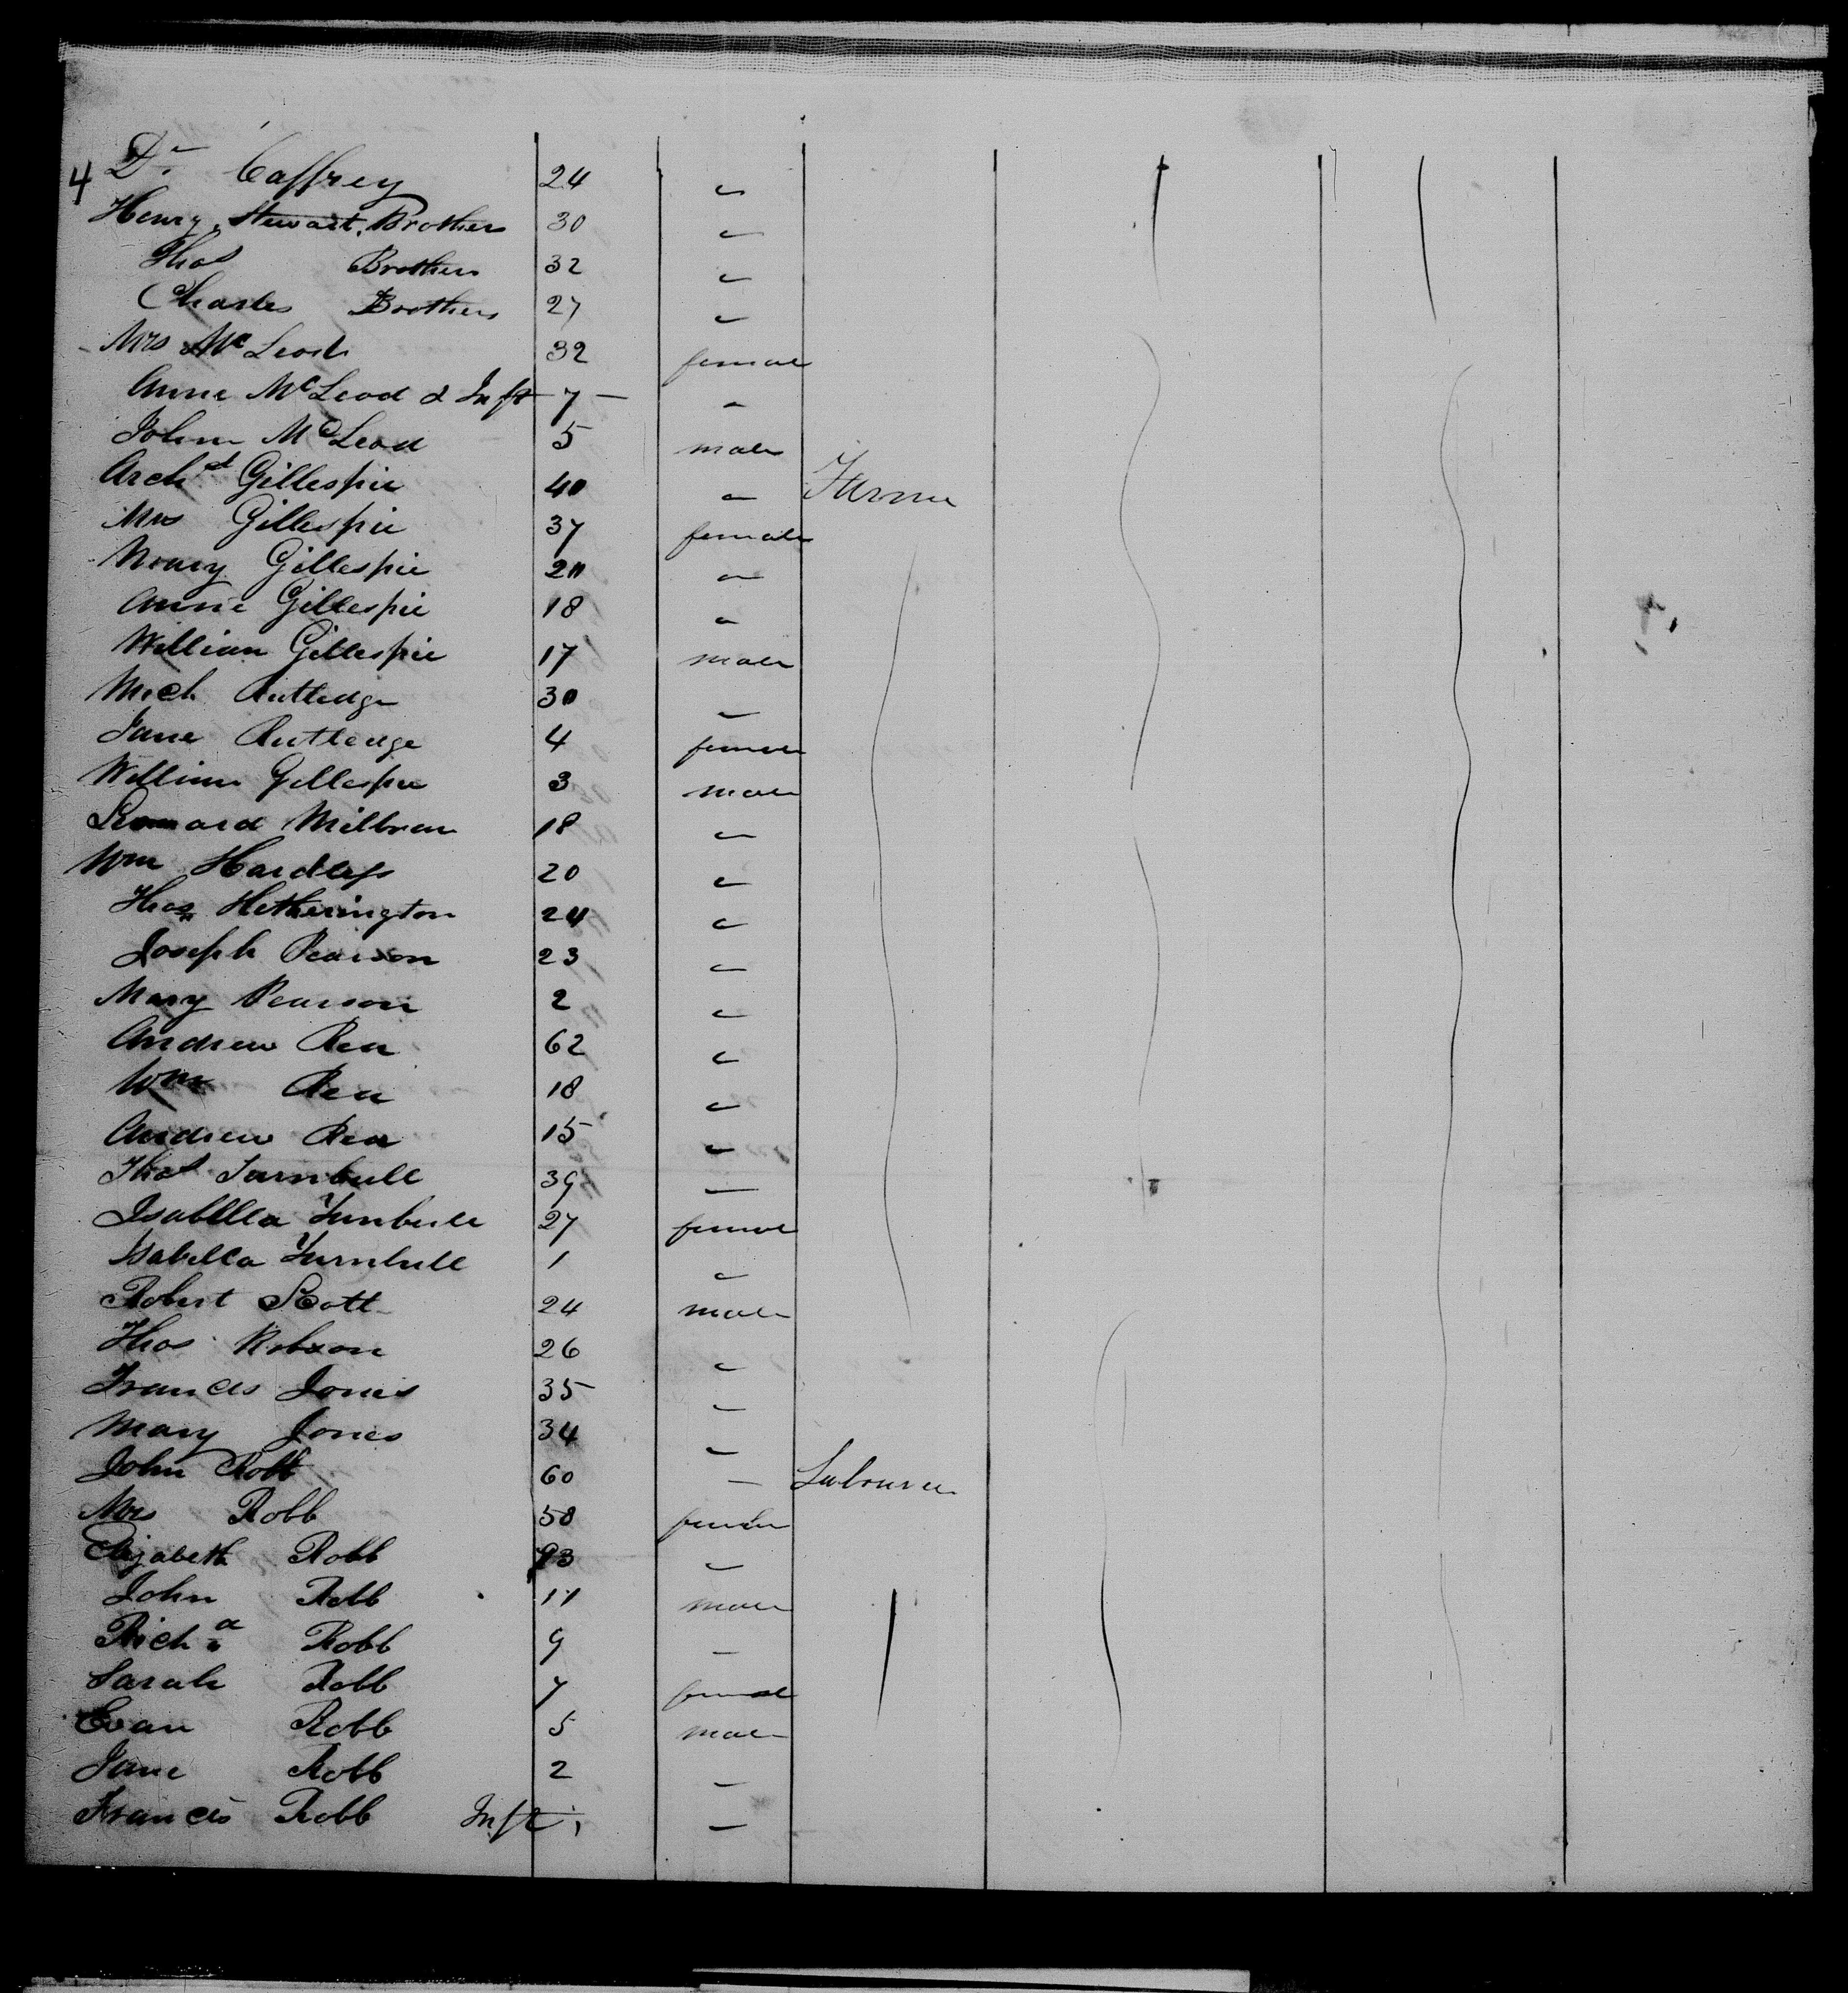 4 Dr. Caffrey 24 "
Henry Stewart Brothers 30 "
Thos Brothers 32 "
Charles Brothers 27 "
Mrs McLeod 32 female
Anne McLeod & Inft 7 "
John McLeod 5 male
Archd Gillespie 40 " Farmer
Mrs Gillespie 37 female
Mary Gillespie 20 "
Annie Gillespie 18 "
William Gillespie 17 male
Mich Rutledge 30 "
Jane Rutledge 4 female
William Gillespie 3 male
Leonard Milbran 18 "
Wm 20 "
Thos Hetherington 24 "
Joseph Pearson 23 "
Mary Pearson 2 "
Andrew Rea 62 "
Wm Rea 18 "
Andrew Rea 15 "
Thos Turnbull 39 "
Isabella Turnbull 27 female
Isabella Turnbull 1 "
Robert Scott 24 male
Thos Robson 26 "
Frances Jones 35 "
Mary Jones 34 "
John Robb 60 " Labourer
Mrs Robb 58 female
Elizabeth Robb "
John Robb 11 male
Richd Robb 9 "
Sarah Robb 7 female
Evan Robb 5 male
Jane Robb 2 "
Francis Robb Inft "